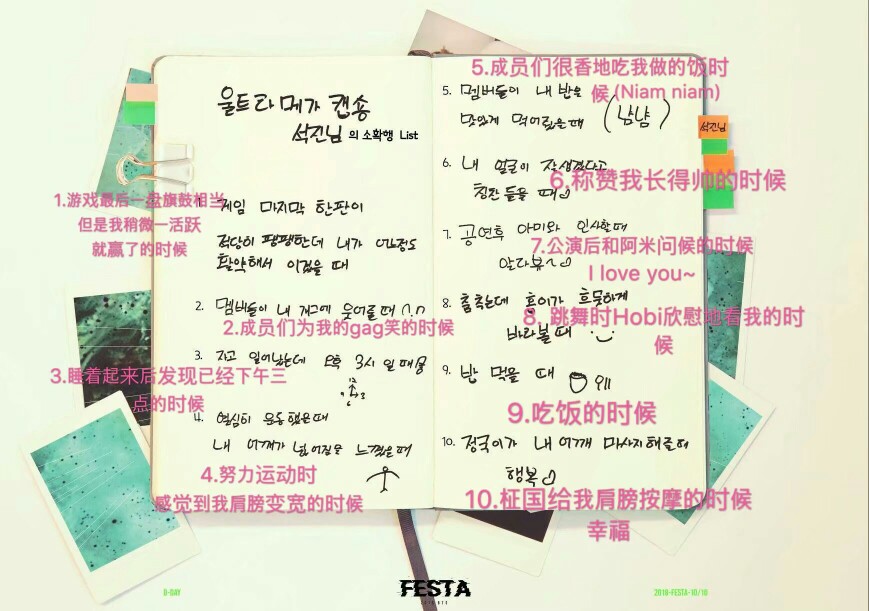 울트라 메가 캡숑
석진님 의 소확행 List
1. 게임 마지막 한판이
적당히 팽팽한데 내가 어정도
활약해서 이겼을 때
1.游戏最后一盘旗鼓相当
但是我稍微一活跃
就赢了的时候
2. 멤버들이 내 개그에 웃어줄 때
2.成员们为我的gag笑的时候
3. 자고 일어났는데 오후 3시 일 때
12
9 3
6
3.睡着起来后发现已经下午三
点的时候
4. 열심히 운동 했을 때
내 어깨가 넓어짐을 느꼈을 때
4.努力运动时
感觉到我肩膀变宽的时候
5.成员们很香地吃我做的饭时
候 (Niam niam)
5. 멤버들이 내 밥을
맛있게 먹어줬을 때 (냠냠)
6. 내 얼굴이 잘생겼다고
칭찬 들을 때
6.称赞我长得帅的时候
7. 공연후 아미와 인사할 때
7.公演后和阿米问候的时候
알라뷰~
I love you~
8. 춤추는데 홉이가 흐뭇하게
바라볼 때
8. 跳舞时Hobi欣慰地看我的时
候
9. 밥 먹을 때
9.吃饭的时候
10. 정국이가 내 어깨 마사지 해줄 때
행복
10.柾国给我肩膀按摩的时候
幸福
석진님
D-DAY
FESTA
2018-FESTA-10/10